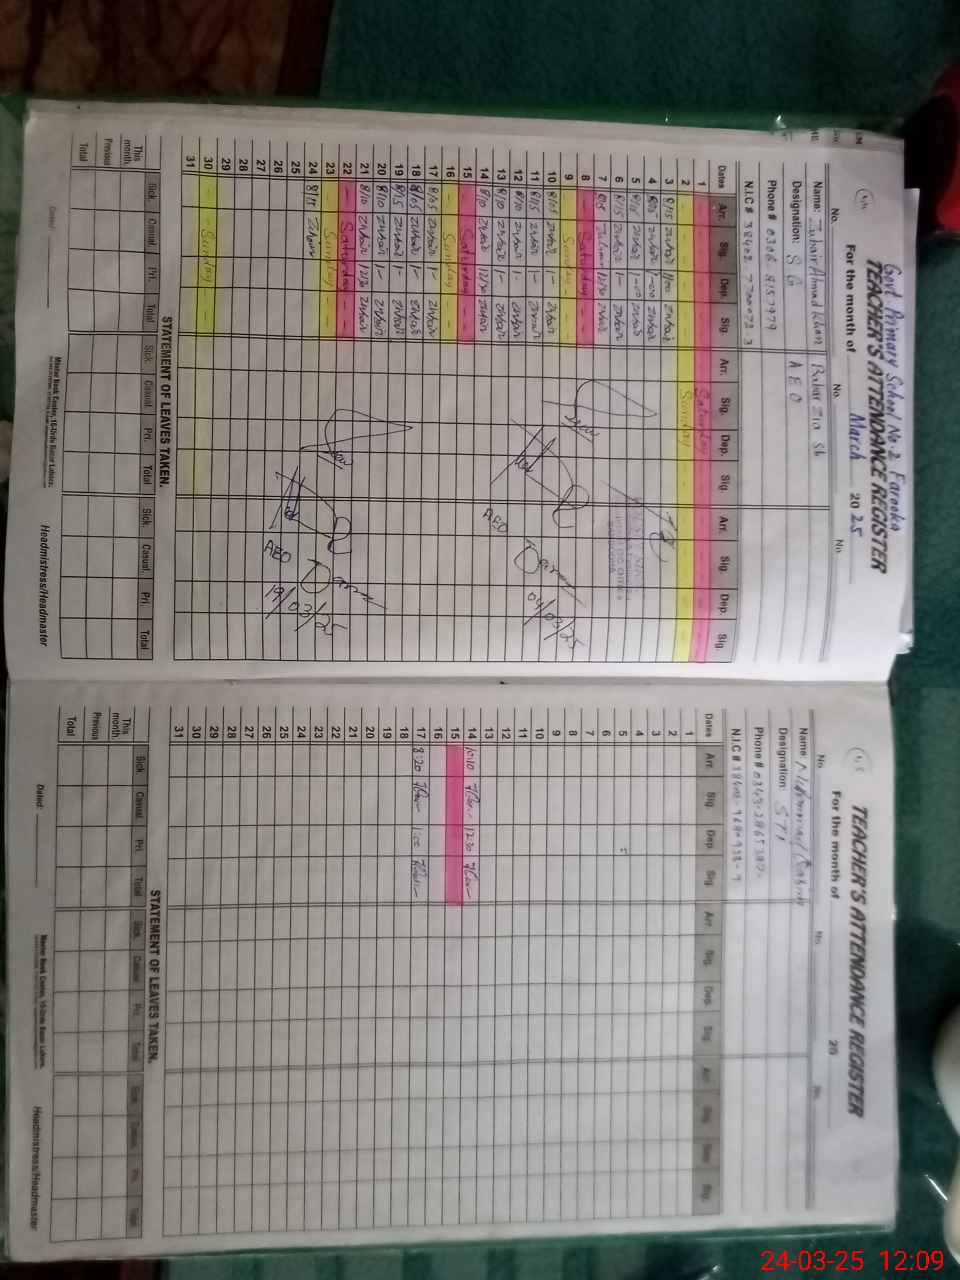 Govt Primary School No. 2 Farooka
TEACHER'S ATTENDANCE REGISTER
For the month of March 2025
No. No. No.
Name: Zubair Ahmad Khan Babar Zia Sb
Designation: S G A E O
Phone # 0306-8157979
N.I.C #
Dates Arr. Sig. Dep. Sig. Arr. Sig. Dep. Sig. Arr. Sig. Dep. Sig.
1 Saturday
2 Sunday
3 8/15 Zubair Zubair
4 8/05 Zubair 1-00 Zubair
5 8/15 Zubair 1-00 Zubair
6 8/15 Zubair 1- Zubair
7 8/15 Zubair 12/30 Zubair
8 Saturday
9 Sunday
10 8/05 Zubair 1- Zubair
11 8/15 Zubair 1- Zubair
12 8/10 Zubair 1- Zubair
13 8/10 Zubair 1- Zubair
14 8/10 Zubair 12/30 Zubair
15 Saturday
16 Sunday
17 8/05 Zubair 1- Zubair
18 8/05 Zubair 1- Zubair
19 8/15 Zubair 1- Zubair
20 8/10 Zubair 1- Zubair
21 8/10 Zubair 12/30 Zubair
22 Saturday
23 Sunday
24 8/15 Zubair
25
26
27
28
29
30 Sunday
31
AEO
04/03/25
AEO
19/03/25
STATEMENT OF LEAVES TAKEN.
Sick. Casual. Pri. Total Sick. Casual. Pri. Total Sick. Casual. Pri. Total
This month.
Previous
Total
Dated:
Master Book Center, 16-Urdu Bazar Lahore.
Headmistress/Headmaster
TEACHER'S ATTENDANCE REGISTER
For the month of 20
No. No. No.
Name: Muhammad
Designation: STI
Phone #
N.I.C #
Dates Arr. Sig. Dep. Sig. Arr. Sig. Dep. Sig. Arr. Sig. Dep. Sig.
1
2
3
4
5
6
7
8
9
10
11
12
13
14 10:10 12:30
15
16
17 8:20 1:00
18
19
20
21
22
23
24
25
26
27
28
29
30
31
STATEMENT OF LEAVES TAKEN.
Sick Casual Pri. Total Sick. Casual. Pri. Total Sick. Casual. Pri. Total
This month.
Previous
Total
Dated:
Master Book Center, 16-Urdu Bazar Lahore.
Headmistress/Headmaster
24-03-25 12:09